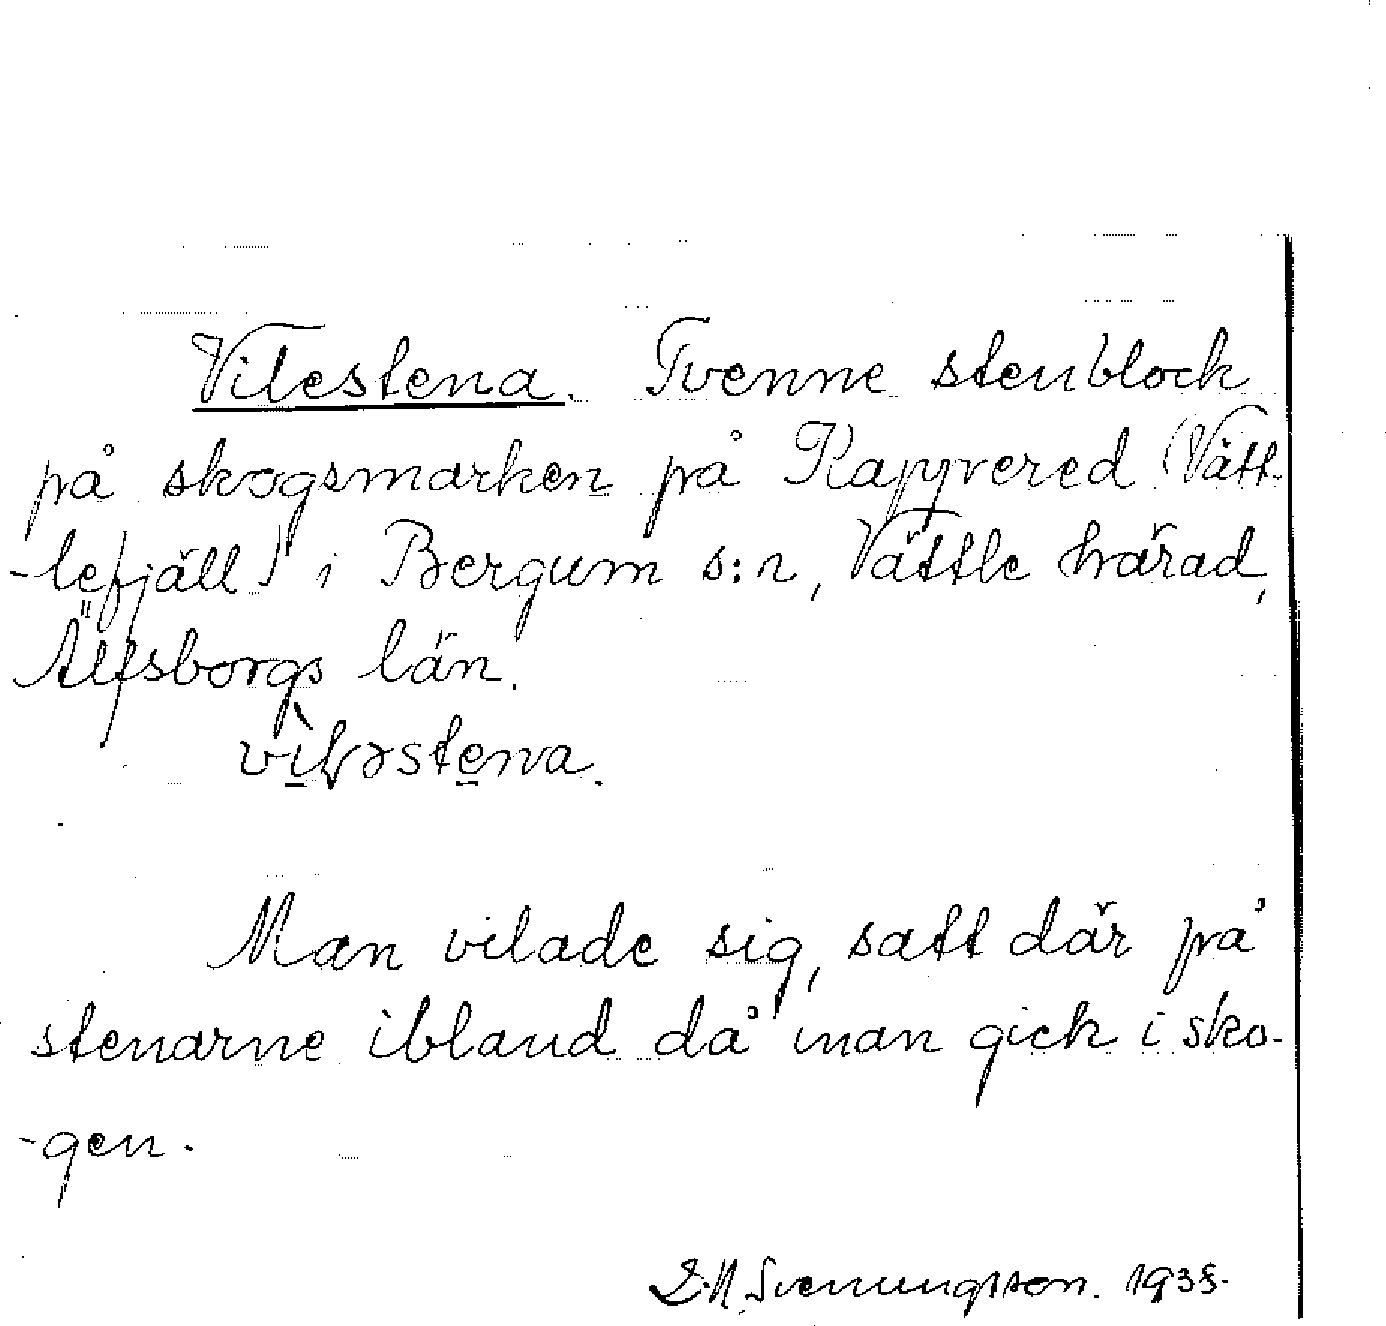 Vilestena. Tvenne stenblock
på skogsmarken på Kapprered (Vätt-
-lefjäll) i Bergum s:n, Vättle härad,
Älfsborgs län.
Man vilade sig, satt där på
stenarne ibland då man gick i sko-
-gen.
Svenungsson.